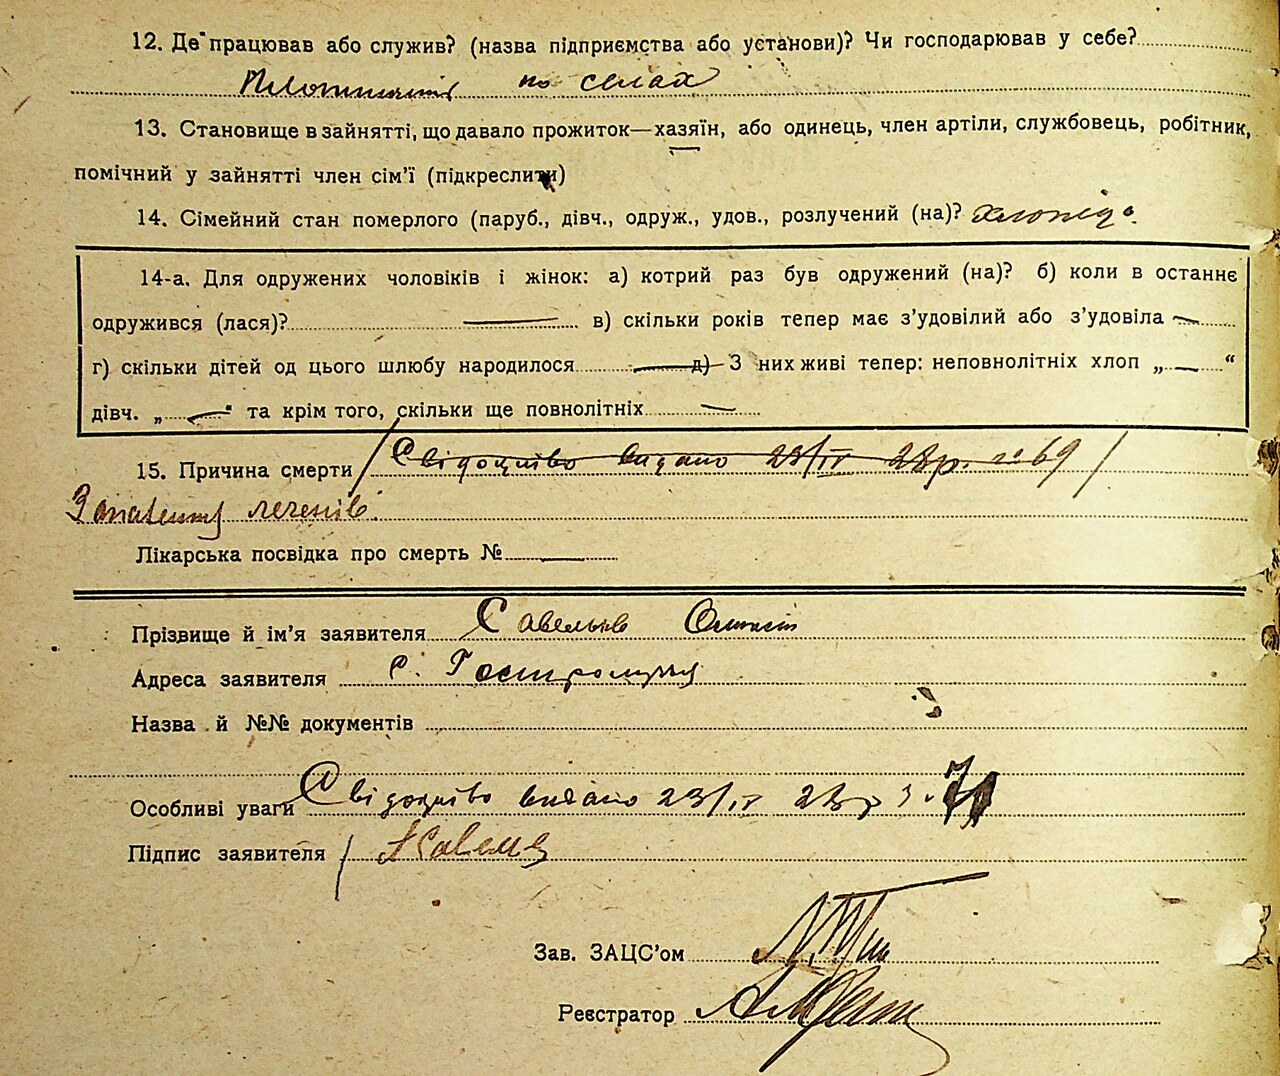 12. Де працював або служив? (назва підприємства або установи)? Чи господарював у себе?
по селах
13. Становище в зайнятті, що давало прожиток—хазяїн, або одинець, член артіли, службовець, робітник,
помічний у зайнятті член сім'ї (підкреслити)
14. Сімейний стан померлого (паруб., дівч., одруж., удов., розлучений (на)?
14-а. Для одружених чоловіків і жінок: а) котрий раз був одружений (на)? б) коли в останнє
одружився (лася)? в) скільки років тепер має з'удовілий або з'удовіла —
г) скільки дітей од цього шлюбу народилося д) З них живі тепер: неповнолітніх хлоп „ — “
дівч. „ — “ та крім того, скільки ще повнолітніх —
15. Причина смерти / Свідоцтво видано 23/IV 28р. № 69 /
Запалення легенів.
Лікарська посвідка про смерть № —
Прізвище й ім'я заявителя Савельєв
Адреса заявителя с. Гостромугля
Назва й №№ документів
Особливі уваги Свідоцтво видано 23/IV 28р 70
Підпис заявителя
Зав. ЗАЦС'ом
Реєстратор